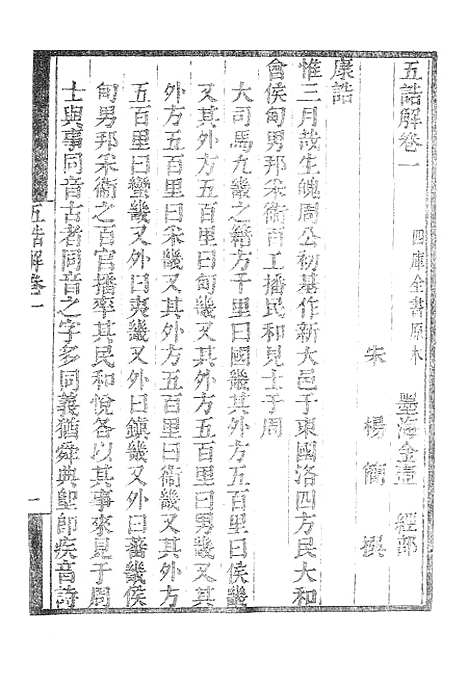 五誥解卷一
四庫全書原本 墨海金壺 經部
宋 楊簡 撰
康誥
惟三月哉生魄周公初基作新大邑于東國洛四方民大和
會侯甸男邦采衛百工播民和見士于周
大司馬九畿之籍方千里曰國畿其外方五百里曰侯畿
又其外方五百里曰甸畿又其外方五百里曰男畿又其
外方五百里曰采畿又其外方五百里曰衛畿又其外方
五百里曰蠻畿又外曰夷畿又外曰鎮畿又外曰蕃畿侯
甸男邦采衛之百官播率其民和悅各以其事來見于周
士與事同音古者同音之字多同義猶舜典堲卽疾音詩
五誥解卷一
一